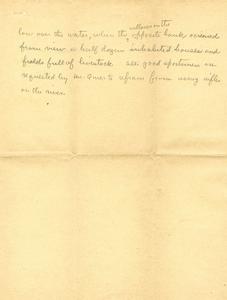 willows on the
low over the water, when the ^ opposite bank screened
from view a half dozen inhabited houses and
fields full of livestock. All good sportsmen are
requested by Mr. to refrain from using rifles
on the river.